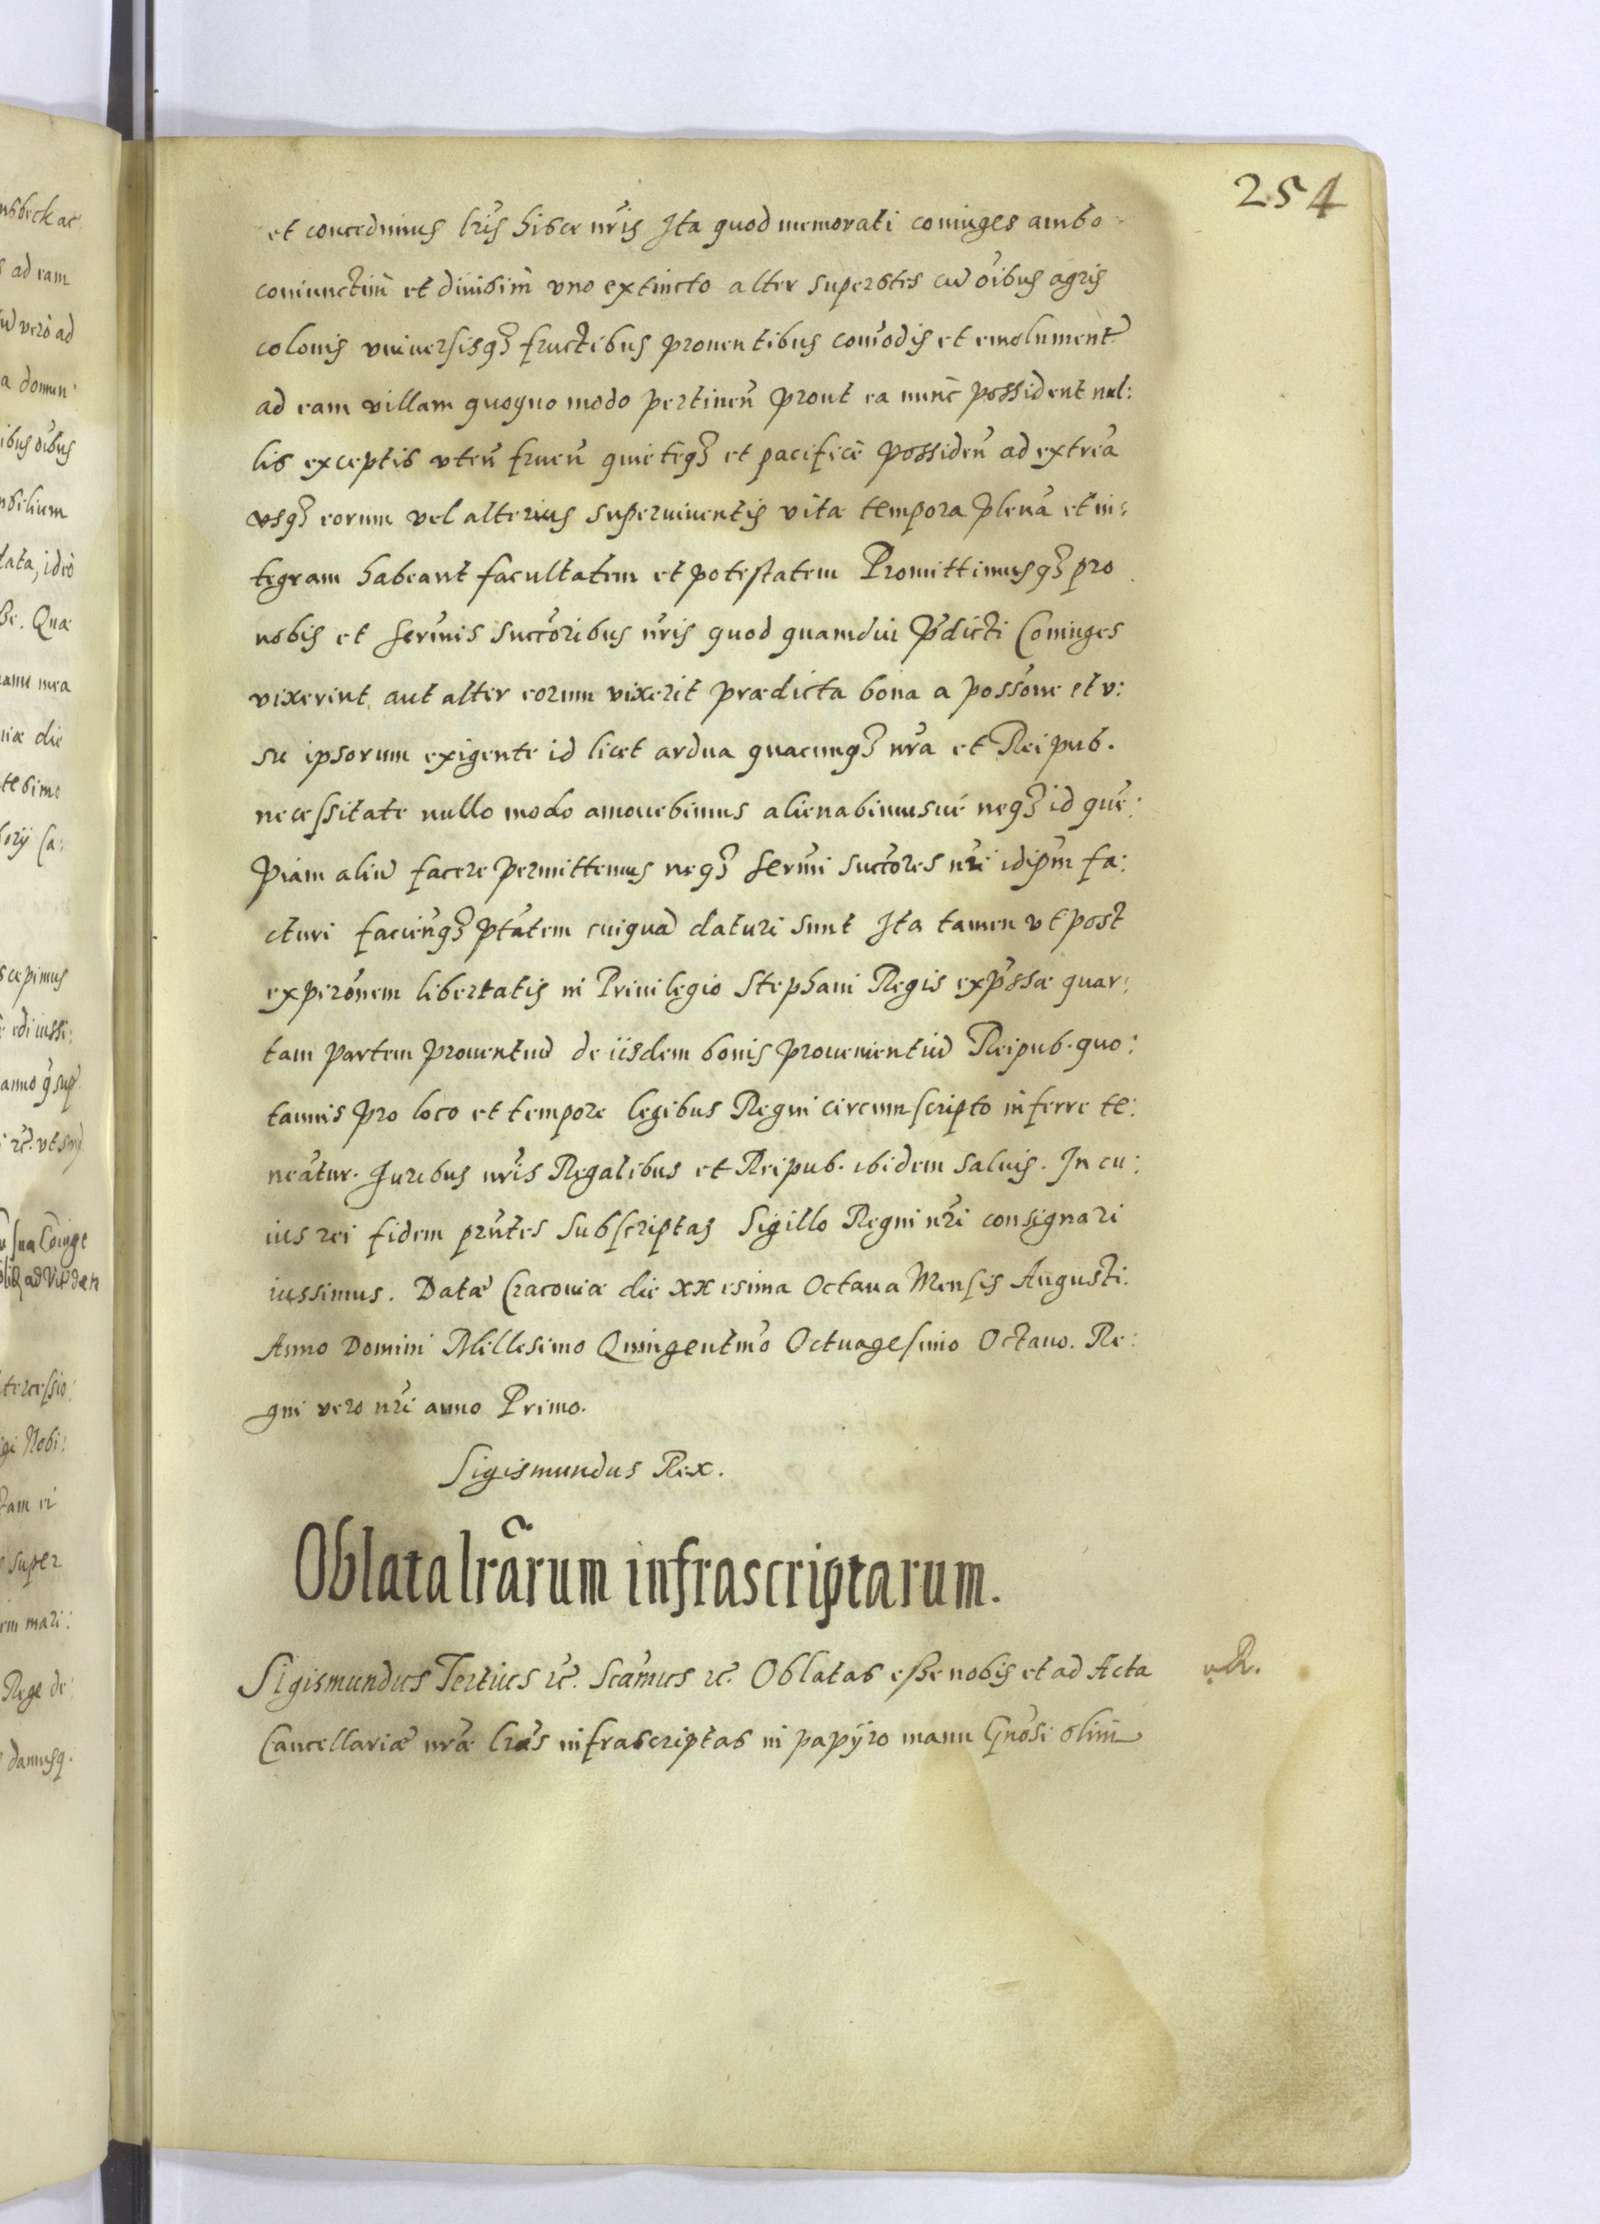 254
et concedimus lr̃is hisce nr̃is Ita quod memorati coniuges ambo
coniunctim̃ et diuisim̃ vno extincto alter superstes cũ õibus agris
colonis vniuersisq3 fructibus prouentibus com̃odis et emolument
ad eam villam quoquo modo pertineñ prout ea nunc possident nul:
lis exceptis vteñ frueñ quieteq3 et pacificè possideñ ad extrẽa
vsq3 eorum vel alterius superuiuentis vitæ tempora plenã et in:
tegram habeant facultatem et potestatem Promittimusq3 pro
nobis et Serm̃is Succõribus nr̃is quod quamdiu p̃dicti Coniuges
vixerint aut alter eorum vixerit prædicta bona a possõne et v:
su ipsorum exigente id licet ardua quacunq3 nr̃a et Reipub.
necessitate nullo modo amouebimus alienabimusue neq3 id que:
piam aliũ facere permittemus neq3 Serm̃i Succõres nr̃i idip̃m fa:
cturi faciẽnq3 ptãtem cuiquã daturi sunt Ita tamen vt post
experõnem libertatis in Priuilegio Stephani Regis exp̃ssæ quar:
tam partem prouentuũ de iisdem bonis prouenientiũ Reipub. quo:
tannis pro loco et tempore legibus Regni circumscripto inferre te:
neãtur. Iuribus nr̃is Regalibus et Reipub. ibidem saluis. In cu:
ius rei fidem pr̃ntes subscriptas Sigillo Regni nr̃i consignari
iussimus. Datæ Cracoviæ die xxesima Octaua Mensis Augusti.
Anno Domini Millesimo Quingentm̃o Octuagesimo Octauo. Re:
gni vero nr̃i anno Primo.
Sigismundus Rex.
Oblata lrãrum infrascriptarum.
Sigismundus Tertius rc̃. Scãmus rc̃. Oblatas esse nobis et ad Acta
Cancellariæ nr̃æ lrãs infrascriptas in papÿro manu Gñosi olim